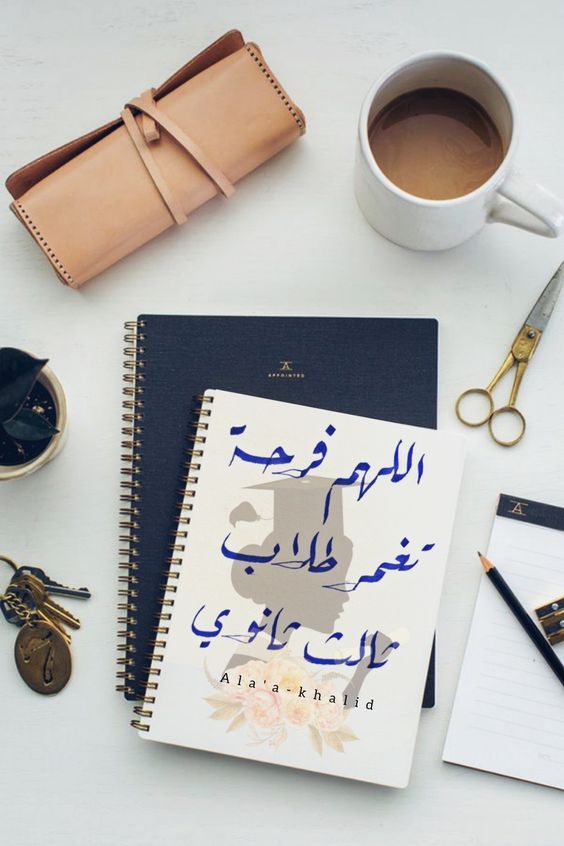 APPOINTED
اللهم فرحة
تغمر طلاب
ثالث ثانوي
Ala'a-khalid